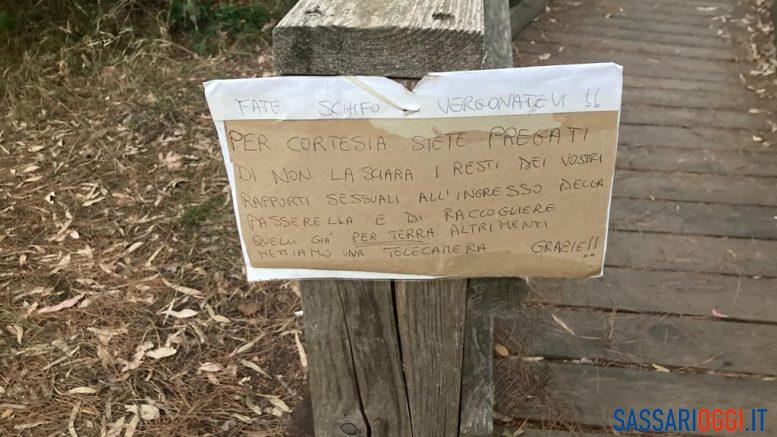 FATE SCHIFO VERGONATEVI !!
PER CORTESIA SIETE PREGATI
DI NON LASCIARA I RESTI DEI VOSTRI
RAPPORTI SESSUALI ALL'INGRESSO DELLA
PASSERELLA E DI RACCOGLIERE
QUELLI GIÀ PER TERRA ALTRIMENTI
METTIAMO UNA TELECAMERA GRAZIE!!
SASSARIOGGI.IT